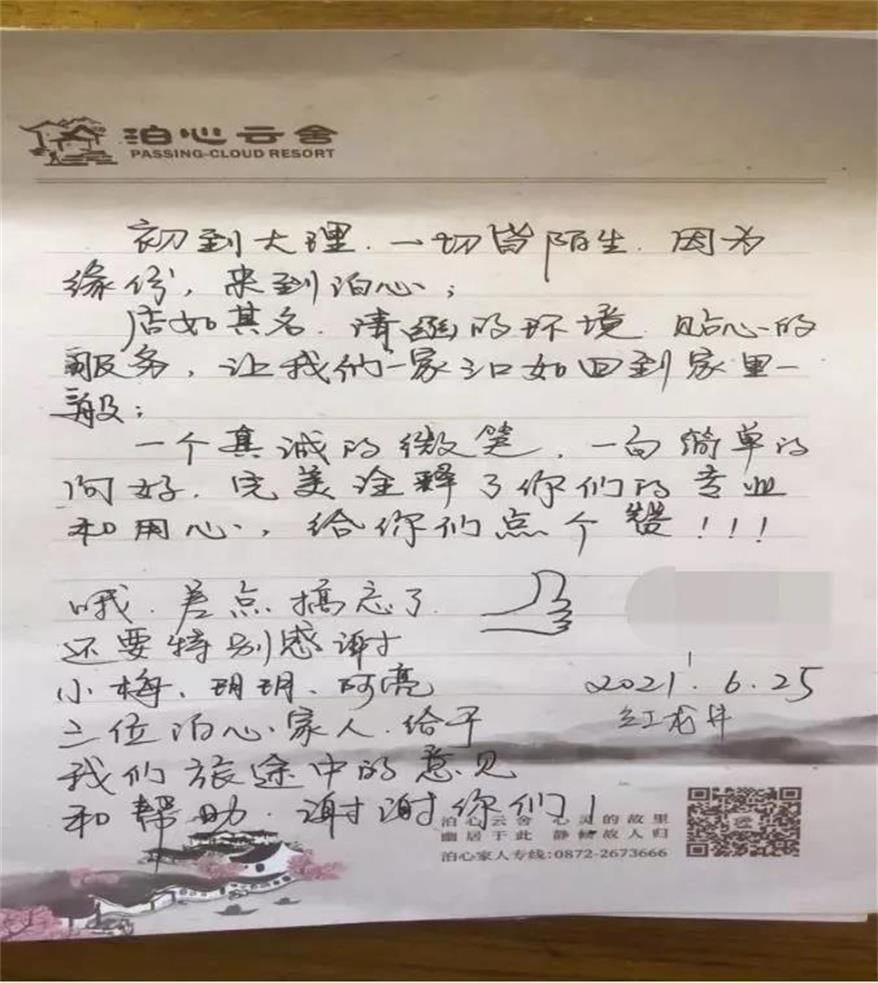 泊心云舍
PASSING-CLOUD RESORT
初到大理.一切皆陌生.因为
缘份，来到泊心；
店如其名.清幽的环境.贴心的
服务，让我们一家三口如回到家里一
般；
一个真诚的微笑，一句简单的
问好.完美诠释了你们的专业
和用心，给你们点个赞！！！
哦.差点搞忘了.
还要特别感谢
小梅、玥玥、阿亮
三位泊心家人.给予
我们旅途中的意见
和帮助.谢谢你们！
2021.6.25
红龙井
泊心云舍 心灵的故里
幽居于此 静候故人归
泊心家人专线:0872-2673666